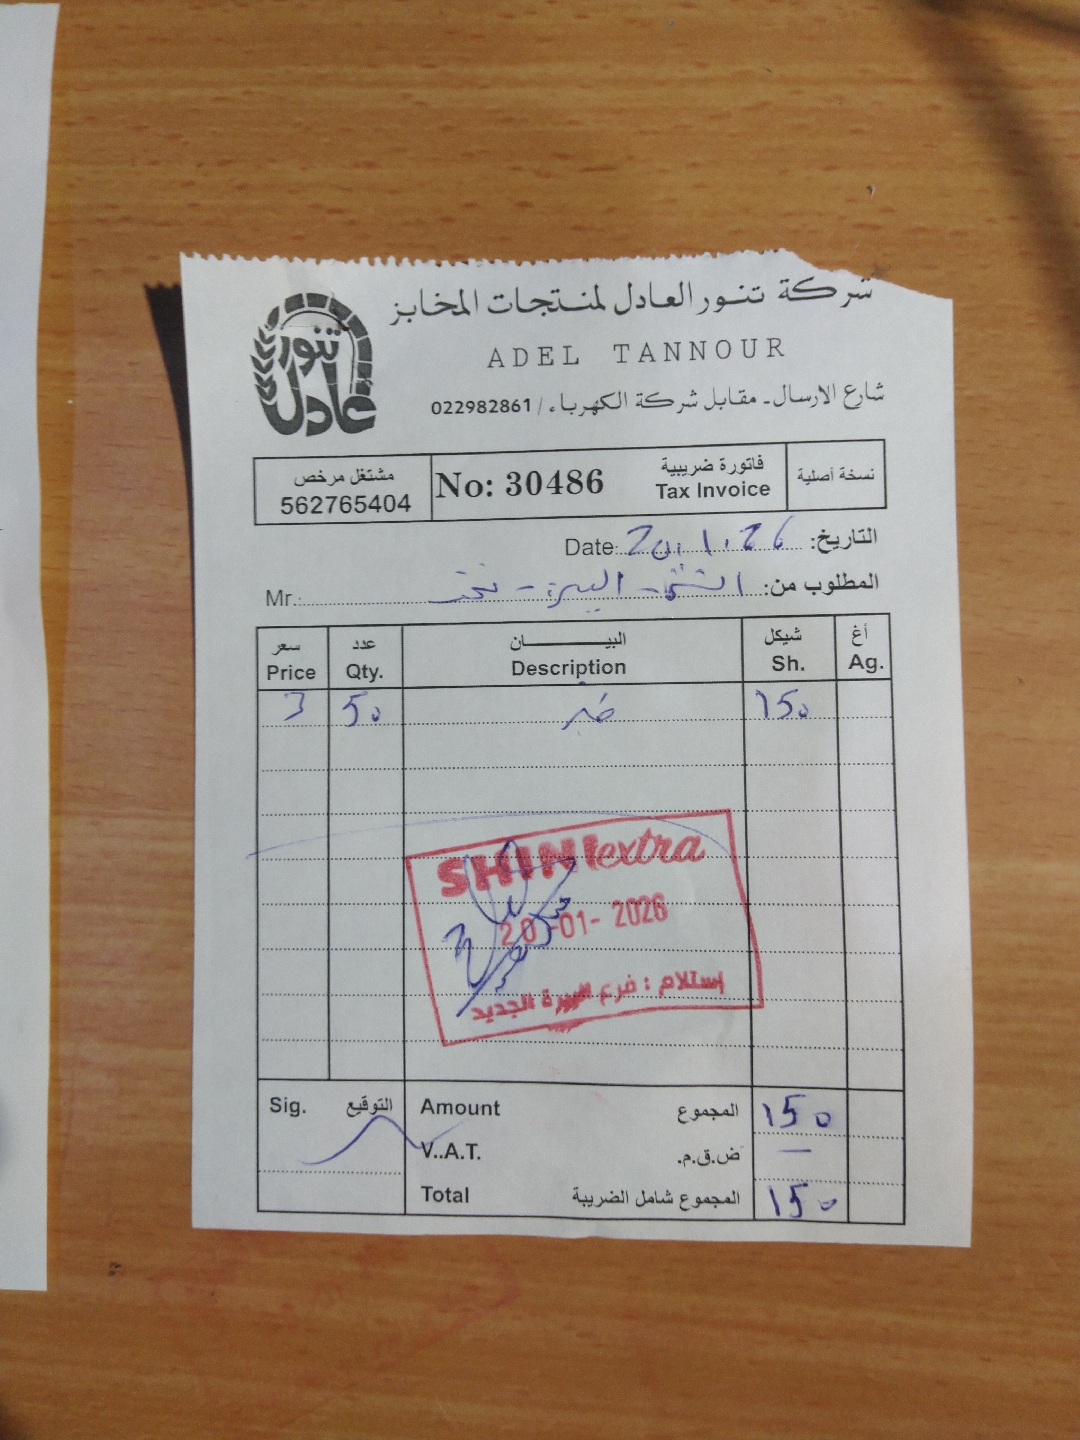 شركة تنور العادل لمنتجات المخابز
تنور عادل
ADEL TANNOUR
شارع الارسال - مقابل شركة الكهرباء / 022982861
نسخة أصلية
فاتورة ضريبية
Tax Invoice
No: 30486
مشتغل مرخص
562765404
التاريخ: 20.1.26 Date:
المطلوب من: - البيرة - Mr.
سعر عدد البيـــان شيكل أغ
Price Qty. Description Sh. Ag.
3 50 خبز 150
SHINI extra
20-01-2026
إستلام : فرع البيرة الجديد
Sig. التوقيع
Amount المجموع 150
V..A.T. ض.ق.م. —
Total المجموع شامل الضريبة 150